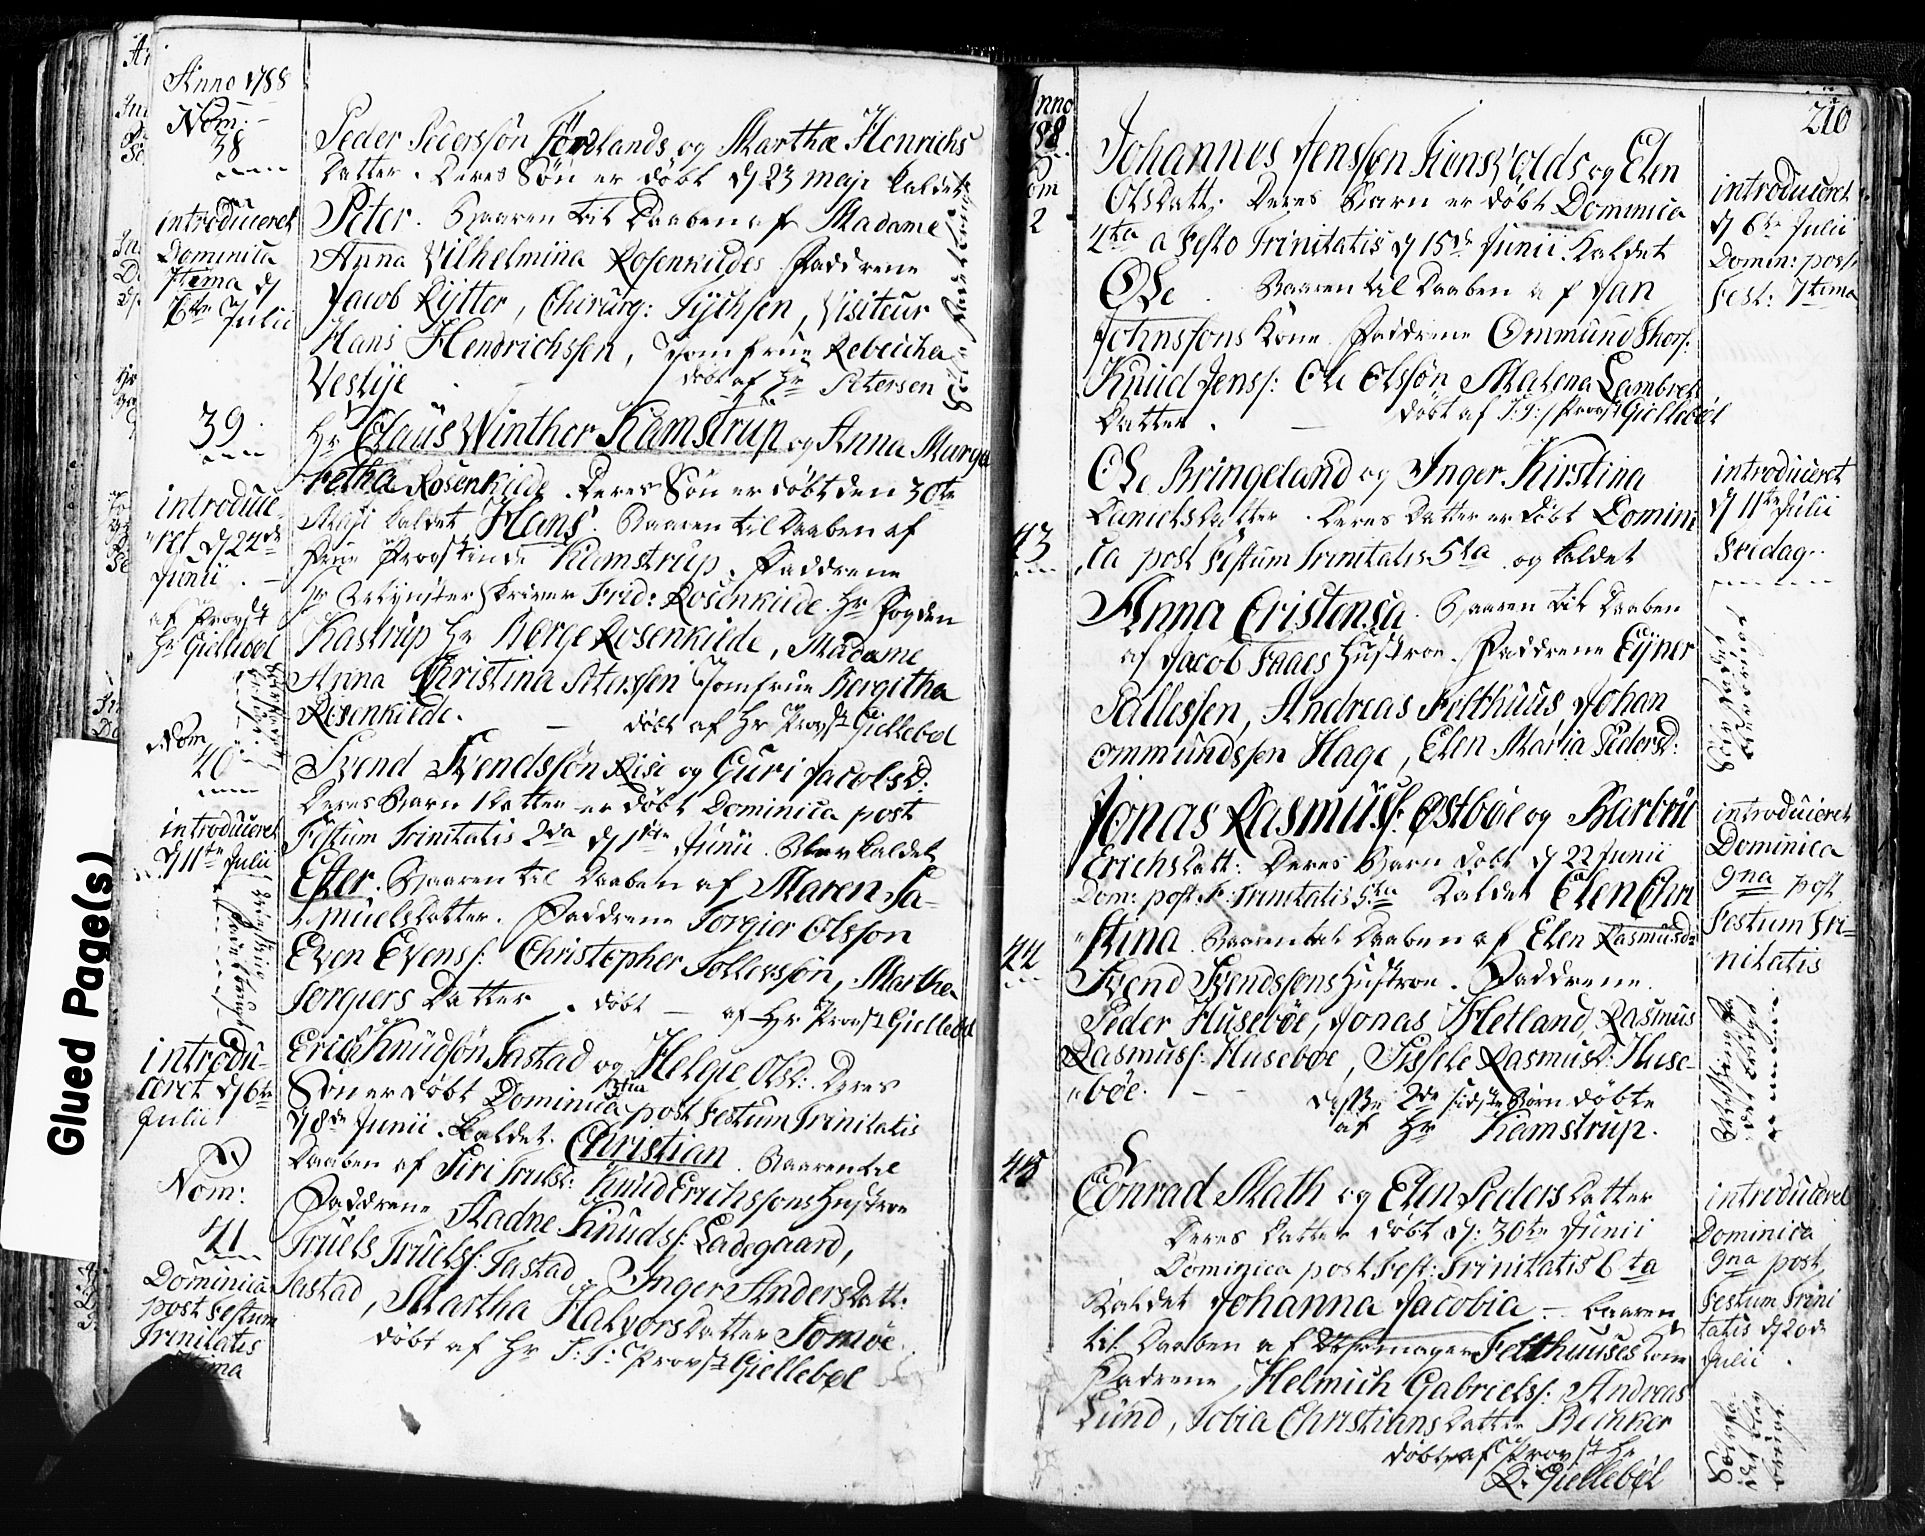 Anno 1788
Nom:
38
introduceret
Dominica
7tema d
6te Julii
Peder Pederssøn Førlands og Marthæ Henrichs
Datter. Deres Søn er døbt d 23 Maji kaldet
Peter. Baaren til Daaben af Madame
Anna Vilhelmina Rosenkildes Faddrene
Jacob Rijtter, Chirurg: Tÿchsen, Visiteur
Hans Hendrichssen, Jomfrue Rebeccha
Vestije
døbt af Hr Petersen
39
introduce-
ret d 24de
Junii
af Provst
Hr Giellebøl
Hr Claus Winther Kamstrup og Anna Marga
retha Rosenkilde. Deres Søn er døbt den 30te
Maji kaldet Hans. Baaren til Daaben af
Frue Provstinde Kamstrup. Faddrene
Hr Frid: Rosenkilde. Hr Fogden
Kastrup Hr Børge Rosenkilde, Madame
Anna Christina Peterssen Jomfrue Bergitha
Rosenkilde.
døbt af Hr Provst Giellebøl
Nom
40
introduceret
d 11te Julii
Svend Svendssøn Rise og Guri Jacobsd:
Deres Barn Datter er døbt Dominica post
Festum Trinitatis 2da d 1ste Junii. Blev kaldet
Ester. Baaren til Daaben af Maren Sa-
muelsdatter. Faddrene Torgier Olsson
Even Evens: Christopher Tollevssøn, Martha
Torgiers Datter. døbt af Hr Provst Giellebøl
introdu-
ceret d 6te
Julii
Nom:
41
Dominica
post Festum
Trinitatis
Erich Knudsøn Tastad og Helge Olsd:. Deres
Søn er døbt Dominica 3tia post Festum Trinitatis
d 8de Junii. kaldet Christian. Baaren til
Daaben af Siri Trulsd: Knud Erichssøns Hustroe
Faddrene Aadne Knuds: Ladegaard,
Truels Truels: Tastad, Inger Anders Datt:
Tastad, Martha Halvors Datter Somøe
døbt af Hr S: T: Provst Giellebøl
210
Anno
1788
Nom
2
Johannes Jenssen Tiensvolds og Elen
Olsdatt. Deres Barn er døbt Dominica
4ta a Festo Trinitatis d 15de Junii kaldet
Ole. Baaren til Daaben af Jan
Johnssons Kone. Faddrene Ommund Thors:
Knud Jens: Ole Olssøn Malena Lambrets
Datter.
døbt af S: T: Provst Giellebøl
introduceret
d 6te Julii
Domin: post
Fest: 7tima
43
Ole Bringeland og Inger Kirstina
Daniels Datter. Deres Datter er døbt Domini
ca post Festum Trinitatis 5ta og kaldet
Anna Cristensa. Baaren til Daaben
af Jacob Faaes Hustroe. Faddrene Eÿner
Pallessen, Andreas Felthuus, Johan
Ommundssen Hage, Elen Maria Pedersd:
introduceret
d 11te Julii
Freidag
44
Jonas Rasmus: Østbøe og Barbru
Erichsdatt: Deres Barn døbt d 22 Junii
Dom: post F: Trinitatis 5ta Kaldet Elen Chri
stina. Baaren til Daaben af Elen Rasmusd:
Svend Svendssøns Hustroe. Faddrene
Peder Husebøe, Jonas Hetland, Rasmus
Rasmus: Husebøe, Sissele Rasmusd: Huse-
bøe.
disse 2de sidste Børn døbte
af Hr Kamstrup.
introduceret
Dominica
9na post
Festum Tri-
nitatis
45
Conrad Math og Elen Peders Datter
Deres Datter døbt d: 30te Junii
Dominica post Fest: Trinitatis 6ta
Kaldet Johanna Jacobia - baaren
til Daaben af Felthuuses Kone
Fadrene, Helmich Gabriels: Andreas
Lund, Tobia Christians Datter Beinker
døbt af Provst Hr
R. Giellebøl
introduceret
Dominica
9na post
Festum Trini
tatis d 20de
Julii
Glued Page(s)